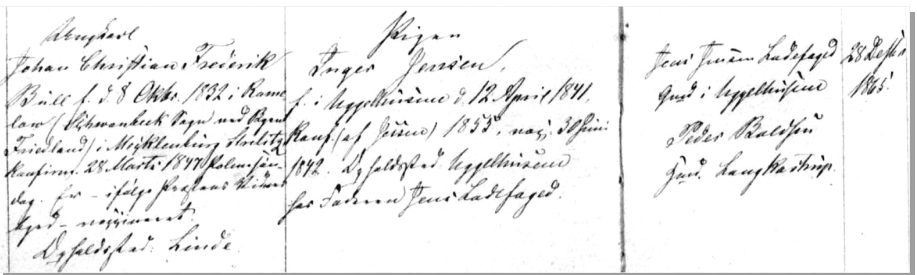 Ungkarl
Johan Christian Frederik
Büll f. d. 8 Oktbr. 1832 i Rame
low (Schwanbeck Sogn ved Byen
Friedland) i Meklenburg Strelitz
Konfirm. 28 Marts 1847 Palmesøn-
dag. Er - ifølge Præstens
- vaccineret.
Opholdssted: Linde.
Pigen
Inger Jensen,
f. i Uggelhuse d. 12 April 1841,
Konf. (af ) 1855, vacc. 30 Juni
1842. Opholdssted Uggelhuse
hos Faderen Jens Ladefoged.
Jens Jensen Ladefoged
Gmd i Uggelhuse
Peder Baldsen
Gmd. Langkastrup.
28 Decbr
1865.